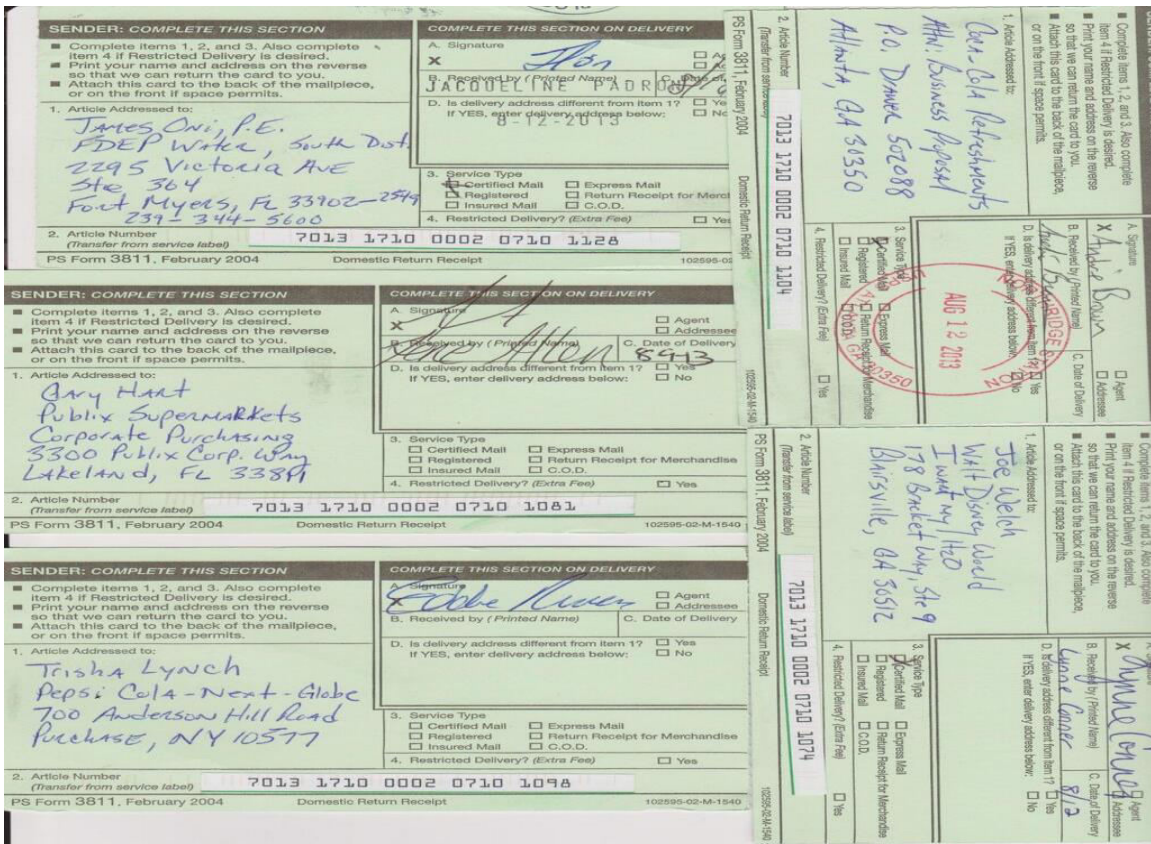 SENDER: COMPLETE THIS SECTION
■ Complete items 1, 2, and 3. Also complete
item 4 if Restricted Delivery is desired.
■ Print your name and address on the reverse
so that we can return the card to you.
■ Attach this card to the back of the mailpiece,
or on the front if space permits.
1. Article Addressed to:
James Oni, P.E.
FDEP Water, South Dist.
2295 Victoria Ave
Ste 364
Fort Myers, FL 33902-2549
239-344-5600
2. Article Number
(Transfer from service label)
7013 1710 0002 0710 1128
PS Form 3811, February 2004
Domestic Return Receipt
102595-02
COMPLETE THIS SECTION ON DELIVERY
A. Signature
X
B. Received by (Printed Name)
JACQUELINE PADRON
D. Is delivery address different from item 1? Ye
If YES, enter delivery address below: No
8-12-2013
3. Service Type
Certified Mail Express Mail
Registered Return Receipt for Merch
Insured Mail C.O.D.
4. Restricted Delivery? (Extra Fee) Yes
SENDER: COMPLETE THIS SECTION
■ Complete items 1, 2, and 3. Also complete
item 4 if Restricted Delivery is desired.
■ Print your name and address on the reverse
so that we can return the card to you.
■ Attach this card to the back of the mailpiece,
or on the front if space permits.
1. Article Addressed to:
Gary Hart
Publix Supermarkets
Corporate Purchasing
3300 Publix Corp. Way
Lakeland, FL
2. Article Number
(Transfer from service label)
7013 1710 0002 0710 1081
PS Form 3811, February 2004
Domestic Return Receipt
102595-02-M-1540
COMPLETE THIS SECTION ON DELIVERY
A. Signature
X
Agent
Addressee
B. Received by (Printed Name) C. Date of Delivery
Allen
D. Is delivery address different from item 1? Yes
If YES, enter delivery address below: No
3. Service Type
Certified Mail Express Mail
Registered Return Receipt for Merchandise
Insured Mail C.O.D.
4. Restricted Delivery? (Extra Fee) Yes
SENDER: COMPLETE THIS SECTION
■ Complete items 1, 2, and 3. Also complete
item 4 if Restricted Delivery is desired.
■ Print your name and address on the reverse
so that we can return the card to you.
■ Attach this card to the back of the mailpiece,
or on the front if space permits.
1. Article Addressed to:
Trisha Lynch
Pepsi Cola-Next-Globe
700 Anderson Hill Road
Purchase, NY 10577
2. Article Number
(Transfer from service label)
7013 1710 0002 0710 1098
PS Form 3811, February 2004
Domestic Return Receipt
102595-02-M-1540
COMPLETE THIS SECTION ON DELIVERY
A. Signature
X
Agent
Addressee
B. Received by (Printed Name) C. Date of Delivery
D. Is delivery address different from item 1? Yes
If YES, enter delivery address below: No
3. Service Type
Certified Mail Express Mail
Registered Return Receipt for Merchandise
Insured Mail C.O.D.
4. Restricted Delivery? (Extra Fee) Yes
■ Complete items 1, 2, and 3. Also complete
item 4 if Restricted Delivery is desired.
■ Print your name and address on the reverse
so that we can return the card to you.
■ Attach this card to the back of the mailpiece,
or on the front if space permits.
1. Article Addressed to:
Coca-Cola Refreshments
Attn: Business Proposal
P.O. Drawer 502088
Atlanta, GA 31350
2. Article Number
(Transfer from service label)
7013 1710 0002 0710 1104
PS Form 3811, February 2004
Domestic Return Receipt
102595-02-M-1540
A. Signature
X Andre Brown
Agent
Addressee
B. Received by (Printed Name) C. Date of Delivery
D. Is delivery address different from item 1? Yes
If YES, enter delivery address below: No
AUG 12 2013
3. Service Type
Certified Mail Express Mail
Registered Return Receipt for Merchandise
Insured Mail C.O.D.
4. Restricted Delivery? (Extra Fee) Yes
■ Complete items 1, 2, and 3. Also complete
item 4 if Restricted Delivery is desired.
■ Print your name and address on the reverse
so that we can return the card to you.
■ Attach this card to the back of the mailpiece,
or on the front if space permits.
1. Article Addressed to:
Joe Welch
Walt Disney World
I want my H2O
178 Bracket Way, Ste 9
Blairsville, GA 30512
2. Article Number
(Transfer from service label)
7013 1710 0002 0710 1074
PS Form 3811, February 2004
Domestic Return Receipt
102595-02-M-1540
X Lynne Conner
Agent
Addressee
B. Received by (Printed Name) C. Date of Delivery
Lynne Conner 8/12
D. Is delivery address different from item 1? Yes
If YES, enter delivery address below: No
3. Service Type
Certified Mail Express Mail
Registered Return Receipt for Merchandise
Insured Mail C.O.D.
4. Restricted Delivery? (Extra Fee) Yes